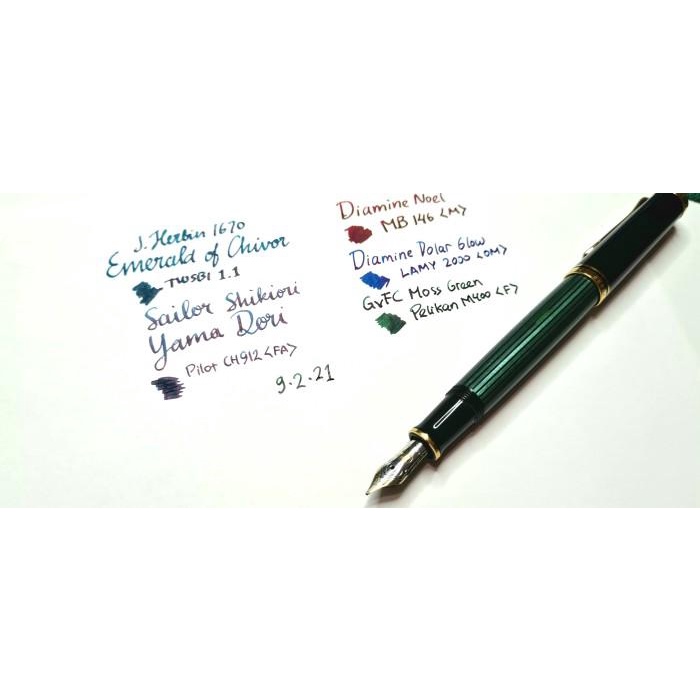 J. Herbin 1670
Emerald of Chivor
TWSBI 1.1
Sailor Shikiori
Yama Dori
Pilot CH912 <FA>
9.2.21
Diamine Noel
MB 146 <M>
Diamine Polar Glow
LAMY 2000 <OM>
GvFC Moss Green
Pelikan M400 <F>